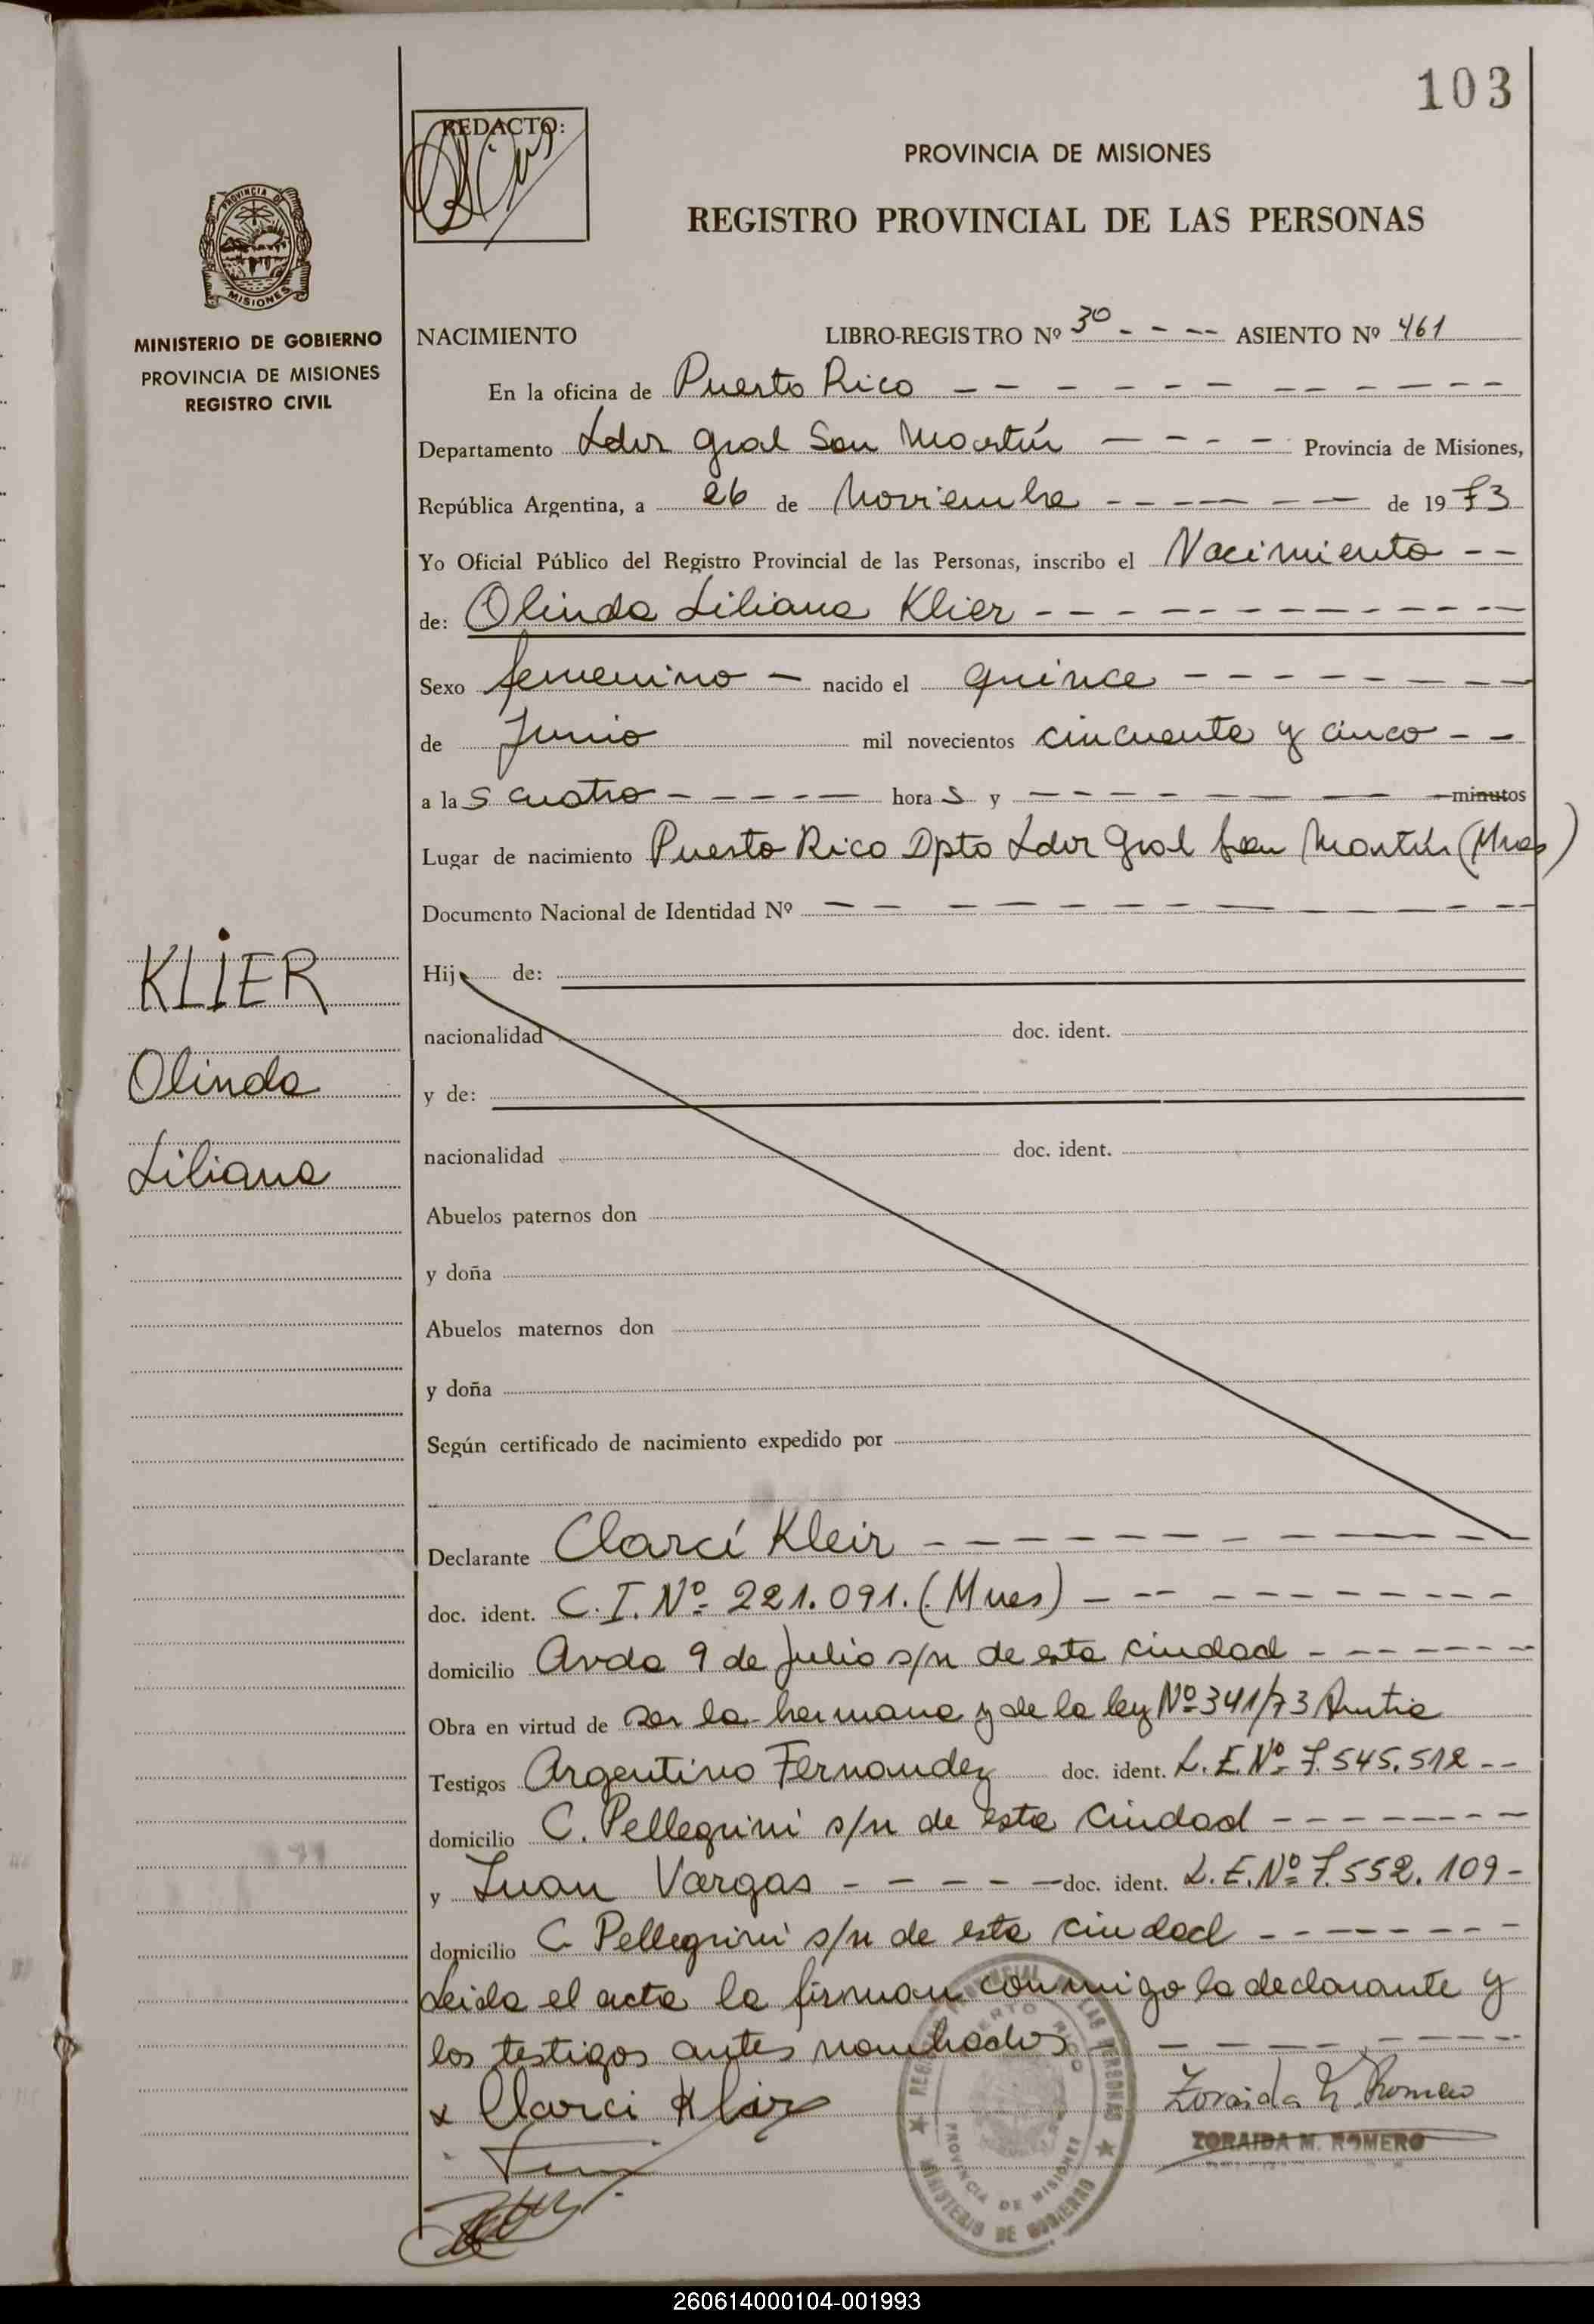 103
REDACTO:
PROVINCIA DE MISIONES
REGISTRO PROVINCIAL DE LAS PERSONAS
PROVINCIA DE
MISIONES
MINISTERIO DE GOBIERNO
PROVINCIA DE MISIONES
REGISTRO CIVIL
NACIMIENTO LIBRO-REGISTRO Nº 30 - - - - ASIENTO Nº 461
En la oficina de Puerto Rico
Departamento Ldor Gral San Martín - - - - Provincia de Misiones,
República Argentina, a 26 de Noviembre - - - - de 1973
Yo Oficial Público del Registro Provincial de las Personas, inscribo el Nacimiento - -
de: Olinda Liliana Klier
Sexo femenino - nacido el quince
de Junio mil novecientos cincuenta y cinco - -
a las cuatro - - - - - horas y - - - - minutos
Lugar de nacimiento Puerto Rico Dpto Ldor Gral San Martín (Mnes)
Documento Nacional de Identidad Nº
KLIER
Olinda
Liliana
Hij de:
nacionalidad doc. ident.
y de:
nacionalidad doc. ident.
Abuelos paternos don
y doña
Abuelos maternos don
y doña
Según certificado de nacimiento expedido por
Declarante Clarcí Kleir
doc. ident. C.I. Nº 221.091. (Mnes)
domicilio Avda 9 de Julio s/n de esta ciudad
Obra en virtud de ser la hermana y de la ley Nº 341/73
Testigos Argentino Fernandez doc. ident. L.E. Nº 7.545.512 - -
domicilio C. Pellegrini s/n de esta ciudad
y Juan Vargas - - - - - doc. ident. L.E. Nº 7.552.109 -
domicilio C Pellegrini s/n de esta ciudad
Leida el acta la firman conmigo la declarante y
los testigos antes nombrados
x Clarci Klier
Zoraida M. Romero
ZORAIDA M. ROMERO
REGISTRO PROVINCIAL DE LAS PERSONAS
PUERTO RICO
PROVINCIA DE MISIONES
MINISTERIO DE GOBIERNO
260614000104-001993